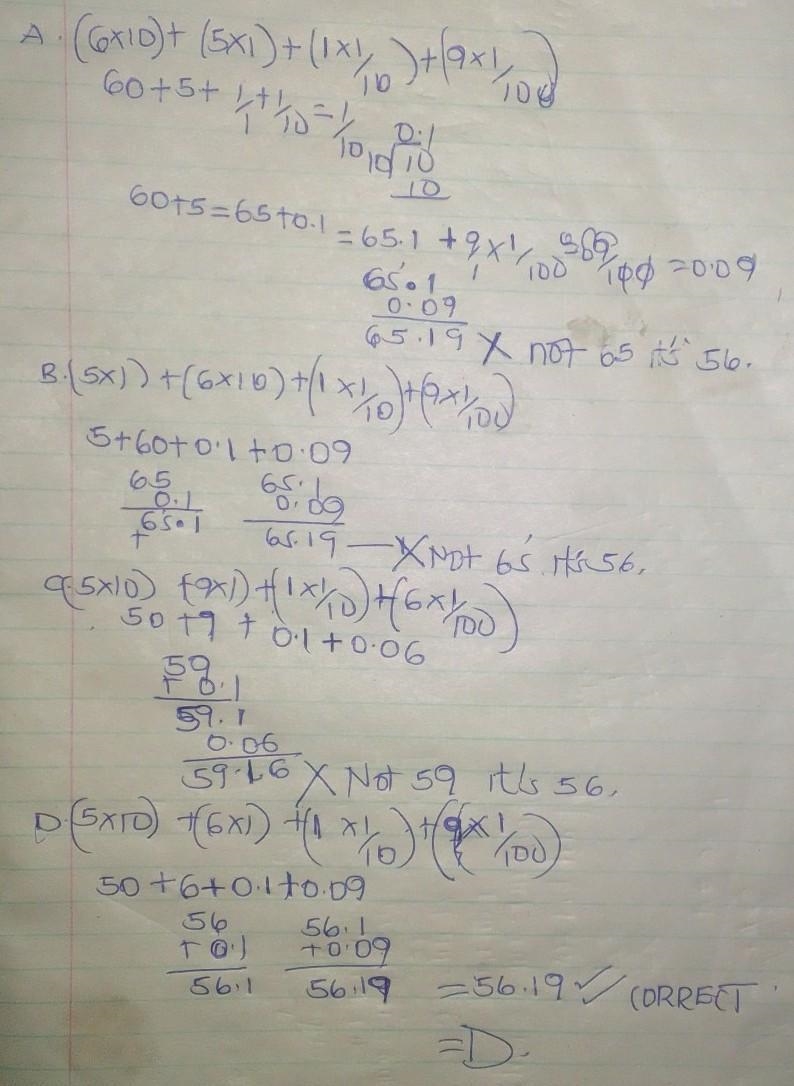 A. (6x10) + (5x1) + (1x1/10) + (9x1/100)
60+5+ 1/1 + 1/10 = 1/10
0.1
10 10
10
60+5=65+0.1 = 65.1 + 9/1 x 1/100 /100 = 0.09
65.1
0.09
65.19 X not 65 it's 56.
B. (5x1) + (6x10) + (1x1/10) + (9x1/100)
5+60+0.1+0.09
65 65.1
0.1 0.09
65.1 65.19 — X Not 65 it's 56.
+
C. (5x10) + (9x1) + (1x1/10) + (6x1/100)
50 + 9 + 0.1 + 0.06
59
+ 0.1
59.1
0.06
59.16 X Not 59 it's 56.
D. (5x10) + (6x1) + (1x1/10) + (9x1/100)
50+6+0.1+0.09
56 56.1
+ 0.1 +0.09
56.1 56.19 = 56.19 ✓ CORRECT
=D.